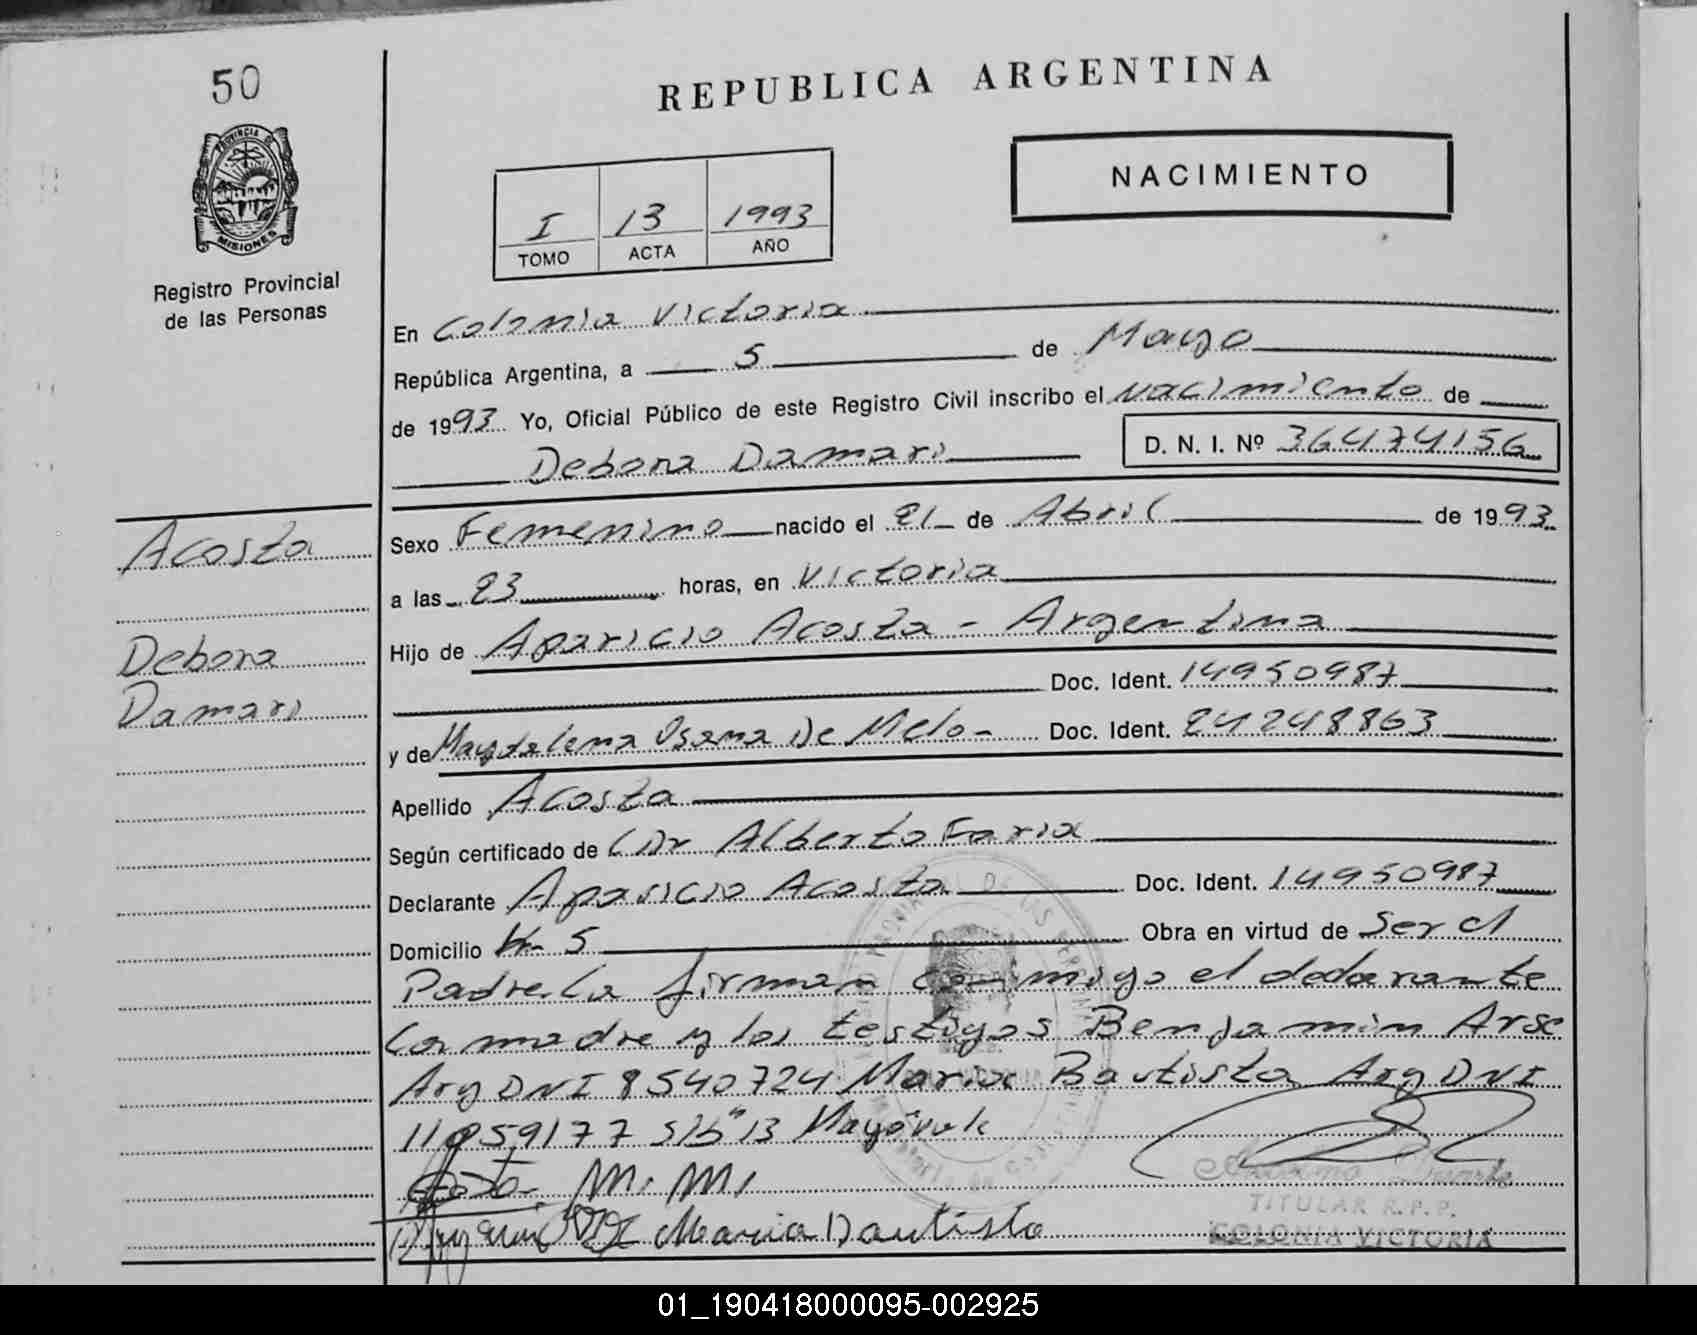 50
REPUBLICA ARGENTINA
PROVINCIA DE
MISIONES
Registro Provincial
de las Personas
I 13 1993
TOMO ACTA AÑO
NACIMIENTO
En Colonia Victoria
República Argentina, a 5 de Mayo
de 1993 Yo, Oficial Público de este Registro Civil inscribo el nacimiento de
Debora Damari D. N. I. Nº 36474156
Acosta
Debora
Damari
Sexo Femenino nacido el 21 de Abril de 1993
a las 23 horas, en Victoria
Hijo de Aparicio Acosta - Argentina
Doc. Ident. 14950987
y de Magdalena De Melo - Doc. Ident. 24248863
Apellido Acosta
Según certificado de Dr Alberto Faria
Declarante Aparicio Acosta Doc. Ident. 14950987
Domicilio Km 5 Obra en virtud de Ser el
Padre. La firman conmigo el declarante
La madre y los testigos Benjamin Arse
Arg DNI 8540724 Maria Bautista Arg DNI
59177 13
M. M.
Maria Bautista
TITULAR R.P.P.
COLONIA VICTORIA
01_190418000095-002925